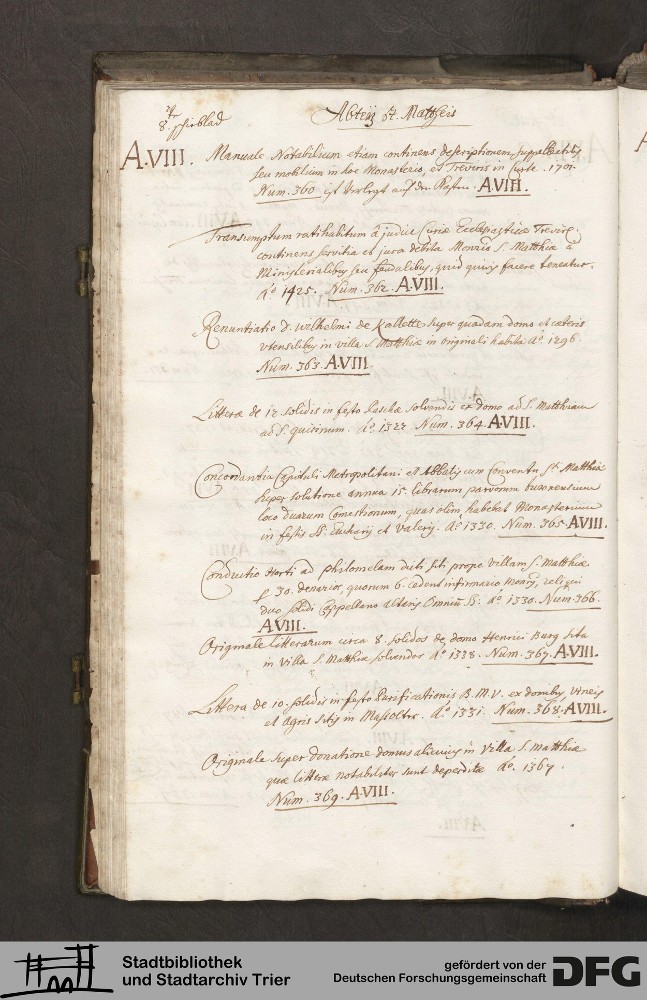 Abteij St. Mattheis
A.VIII. Manuale Notabilium etiam continens descriptionem supellectilis
seu mobilium in hoc Monasterio, et Treviris in Curte. 1701.
Num. 360 ist verlegt auf den Kasten A.VIII.
Transumptum ratihabitum à judice Curiæ Ecclesiasticæ Treviren.
continens servitia et jura debita Monrio S. Matthiæ à
Ministerialibus seu feudalibus, quid quivis facere teneatur.
Aō 1425. Num. 362. A.VIII.
Renuntiatio D. Wilhelmi de Kallette super quadam domo et cæteris
utensilibus in villa S. Matthiæ in originali habita Aō. 1296.
Num. 363. A.VIII.
Litteræ de 12 solidis in festo Paschæ solvendis ex domo ad S. Matthiam
ad S. quirinum. Aō. 1322 Num. 364. A.VIII.
Concordantia Capituli Metropolitani et Abbatis cum Conventu S. Matthiæ
super solutione annua 15. librarum parvorum turonensium
loco duarum Comestionum, quas olim habebat Monasterium
in festis SS. Eucharij et Valerij. Aō. 1330. Num. 365. A.VIII.
Conductio Horti ad philomelam dicti siti prope Villam S. Matthiæ
p 30. denarios, quorum 6. cedent infirmario Monrij, reliqui
duo solidi Cappellano altaris Omnium SS. Aō. 1330. Num. 366.
A.VIII.
Originale litterarum circa 8. solidos de domo Henrici Burg sita
in Villa S. Matthiæ solvendos Aō 1338. Num. 367. A.VIII.
Littera de 10. solidis in festo Purificationis B.M.V. ex domibus vineis
et agris sitis in Aō. 1331. Num. 368. A.VIII.
Originale super donatione domus alicuius in Villa S. Matthiæ
quæ litteræ notabiliter sunt deperditæ Aō. 1367.
Num. 369. A.VIII.
Stadtbibliothek
und Stadtarchiv Trier
gefördert von der
Deutschen Forschungsgemeinschaft
DFG